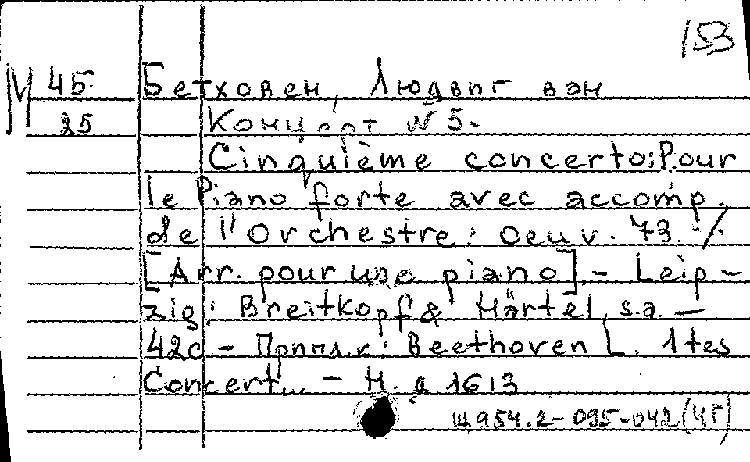 153
М 45 Бетховен, Людвиг ван
25 Концерт №5.
Cinquième concerto:Pour
le Piano forte avec accomp.
de l'Orchestre: Oeuv. 73. /.
[Arr. pour une piano] - Leip-
zig: Breitkopf & Härtel, s.a. —
42с - Приплк: Beethoven L. 1tes
Concert... - Н. д 1613
Щ954.2-095-042(4Г)